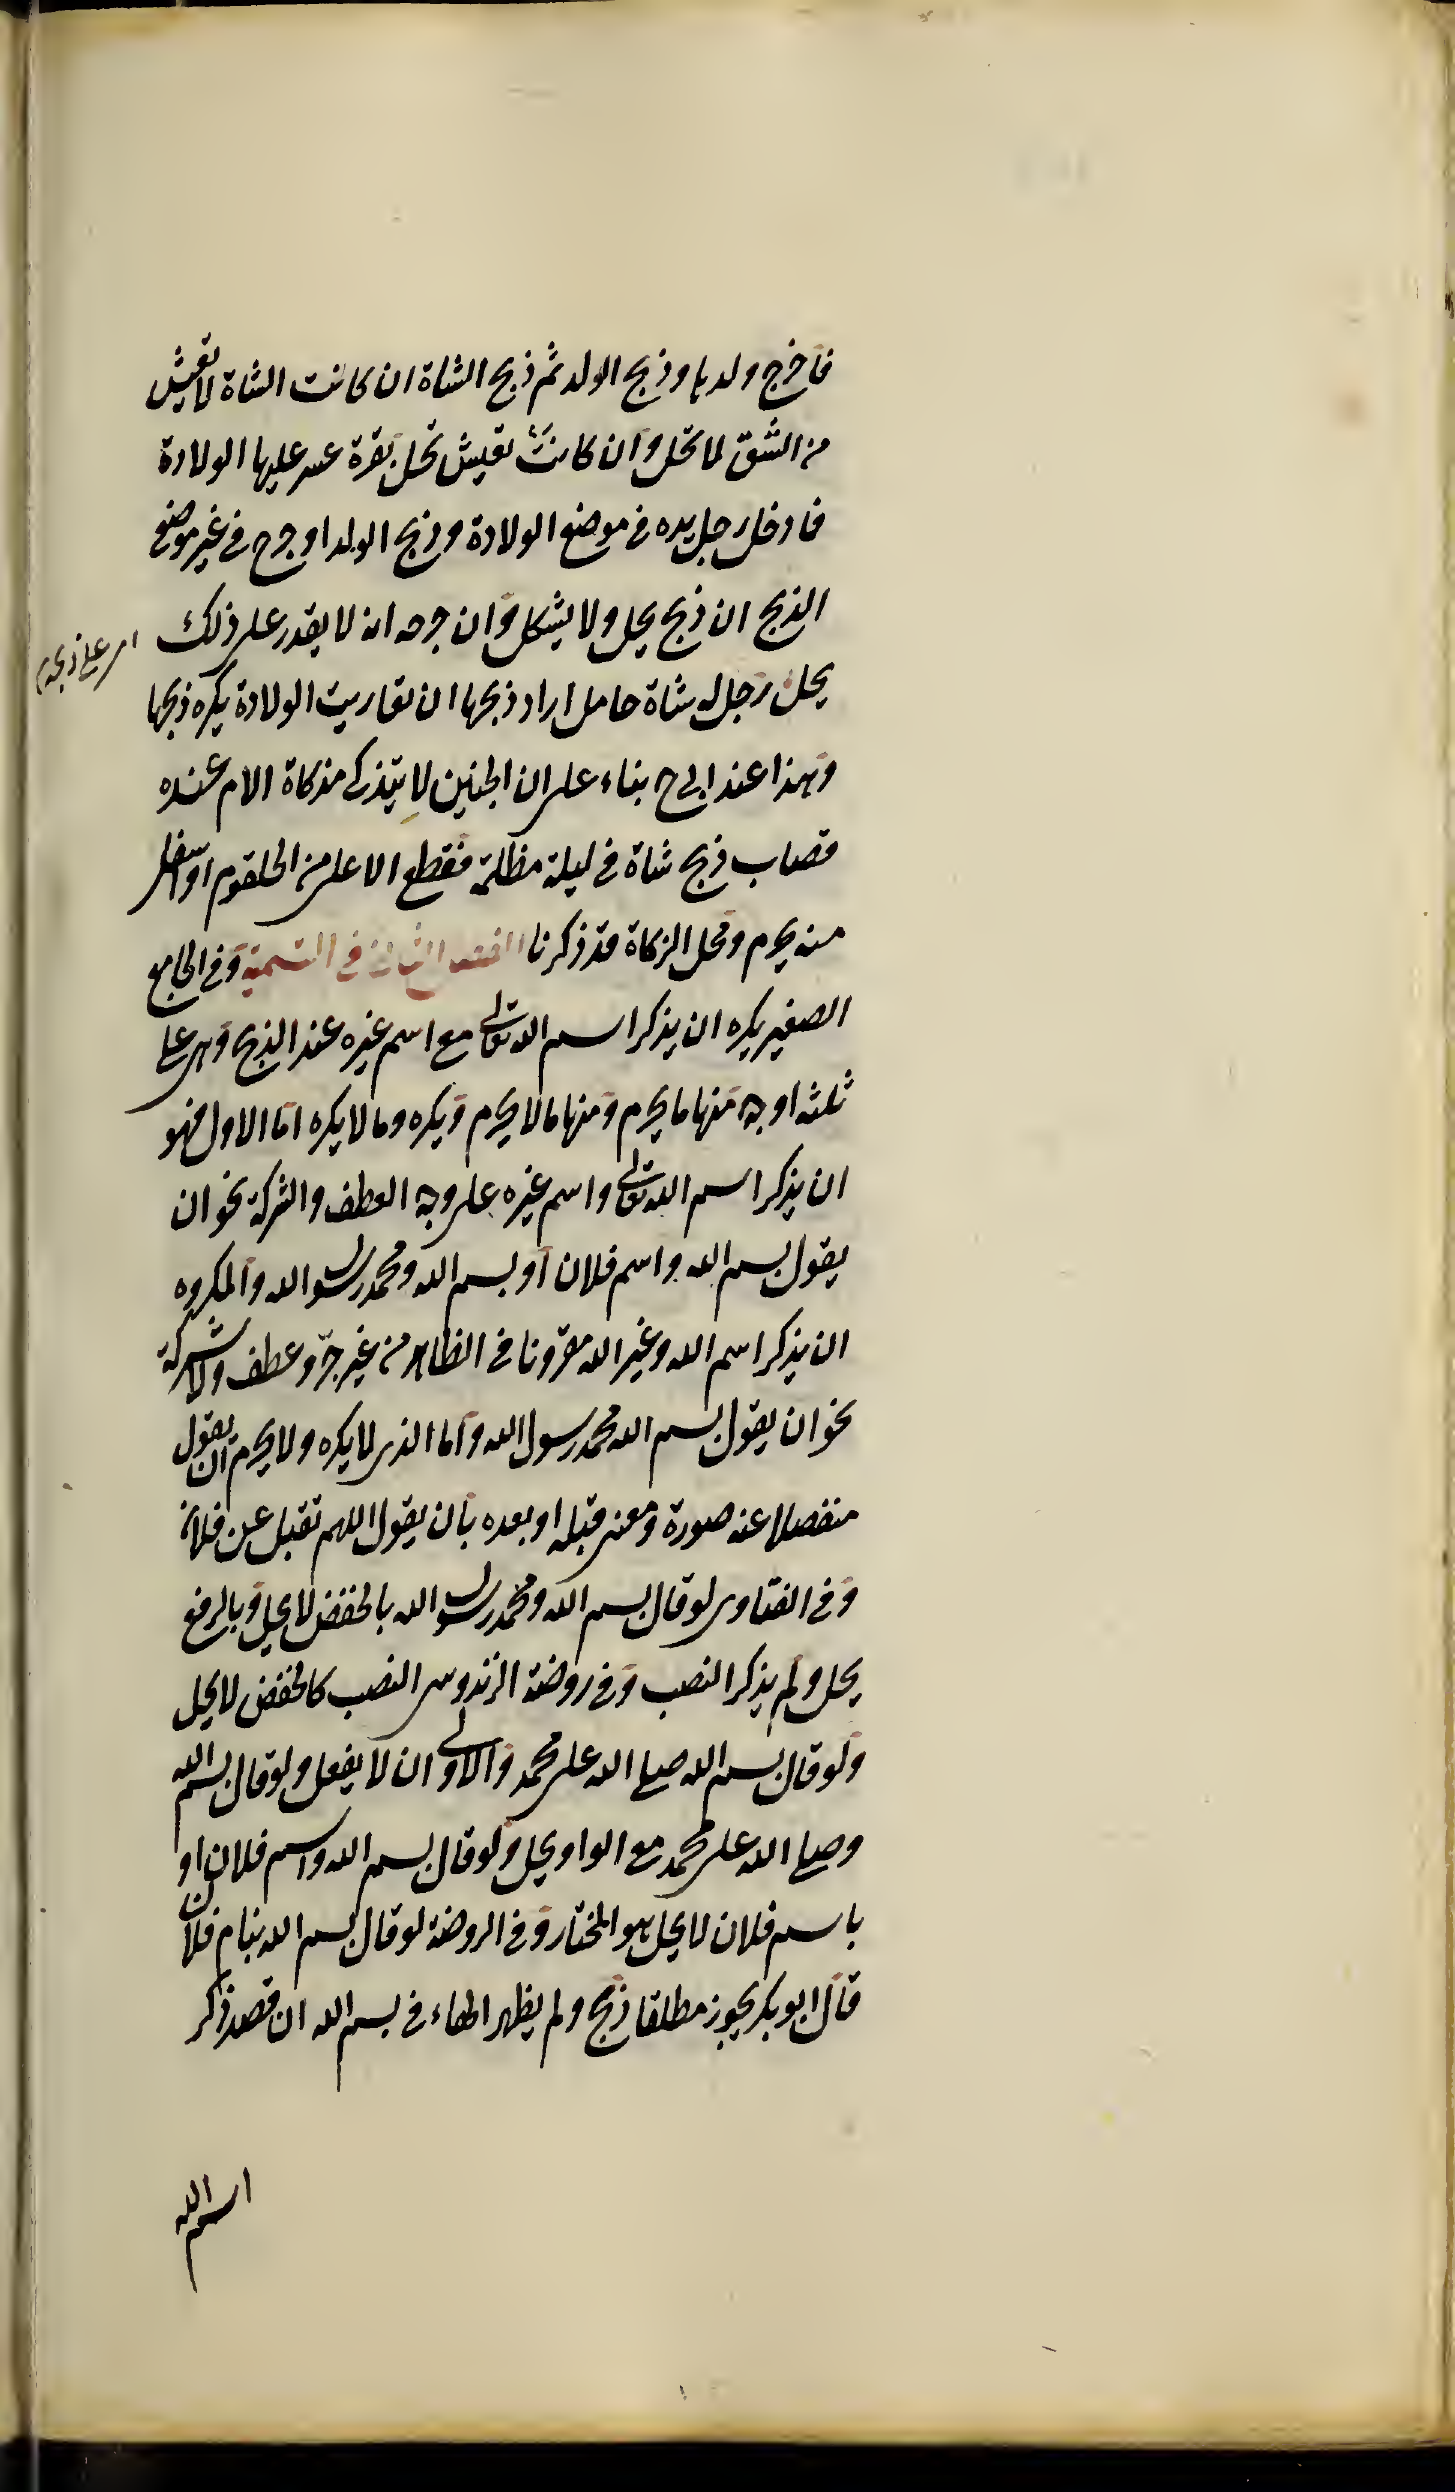 فاخرج ولدها وذبح الولد ثم ذبح الشاة ان كانت الشاة لا تعيش
من الشق لا تحل وان كانت تعيش تحل بقرة عسر عليها الولادة
فادخل رجل يده في موضع الولادة وذبح الولد او جرح في غير موضع
الذبح ان ذبح يحل ولا يشكل وان جرحه ان لا يقدر على ذلك
اى على ذبحه
يحل رجل له شاة حامل اراد ذبحها ان تقاربت الولادة يكره ذبحها
وهذا عند ابى ح بناء على ان الجنين لا يتذكى بذكاة الام عنده
قصاب ذبح شاة في ليلة مظلمة فقطع الاعلى من الحلقوم او اسفل
منه يحرم ومحل الزكاة قد ذكرنا الفصل الثالث في التسمية وفي الجامع
الصغير يكره ان يذكر اسم الله تعالى مع اسم غيره عند الذبح وهى على
ثلثة اوجه منها ما يحرم ومنها ما لا يحرم ويكره وما لا يكره اما الاول فهو
ان يذكر اسم الله تعالى واسم غيره على وجه العطف والشركة نحو ان
يقول بسم الله واسم فلان او بسم الله ومحمد رسول الله والمكروه
ان يذكر اسم الله وغير الله مقرونا في الظاهر من غير جرّ وعطف ولا شركة
نحو ان يقول بسم الله محمد رسول الله واما الذى لا يكره ولا يحرم ان يقول
منفصلا عنه صورة ومعنى قبله او بعده بان يقول اللهم تقبل عن فلان
وفي الفتاوى لو قال بسم الله ومحمد رسول الله بالخفض لا يحل وبالرفع
يحل ولم يذكر النصب وفي روضة الزندوسى النصب كالخفض لا يحل
ولو قال بسم الله صلى الله على محمد والاولى ان لا يفعل ولو قال بسم الله
وصلى الله على محمد مع الواو يحل ولو قال بسم الله واسم فلان او
باسم فلان لا يحل هو المختار وفي الروضة لو قال بسم الله بنام فلان
قال ابو بكر يجوز مطلقا ذبح ولم يظهر الهاء في بسم الله ان قصد ذكر
اسم الله